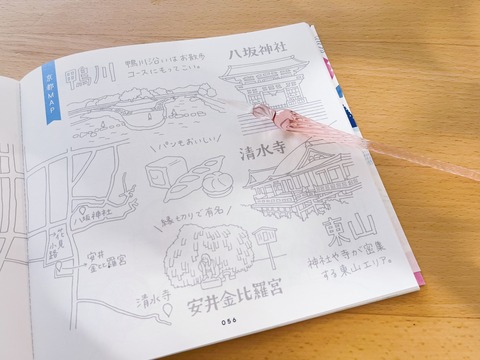 京都MAP
鴨川
鴨川沿いはお散歩
コースにもってこい。
八坂神社
パンもおいしい
清水寺
縁切りで有名
安井金比羅宮
東山
神社や寺が密集
する東山エリア。
八坂神社
花見
小路
安井
金比羅宮
清水寺
056